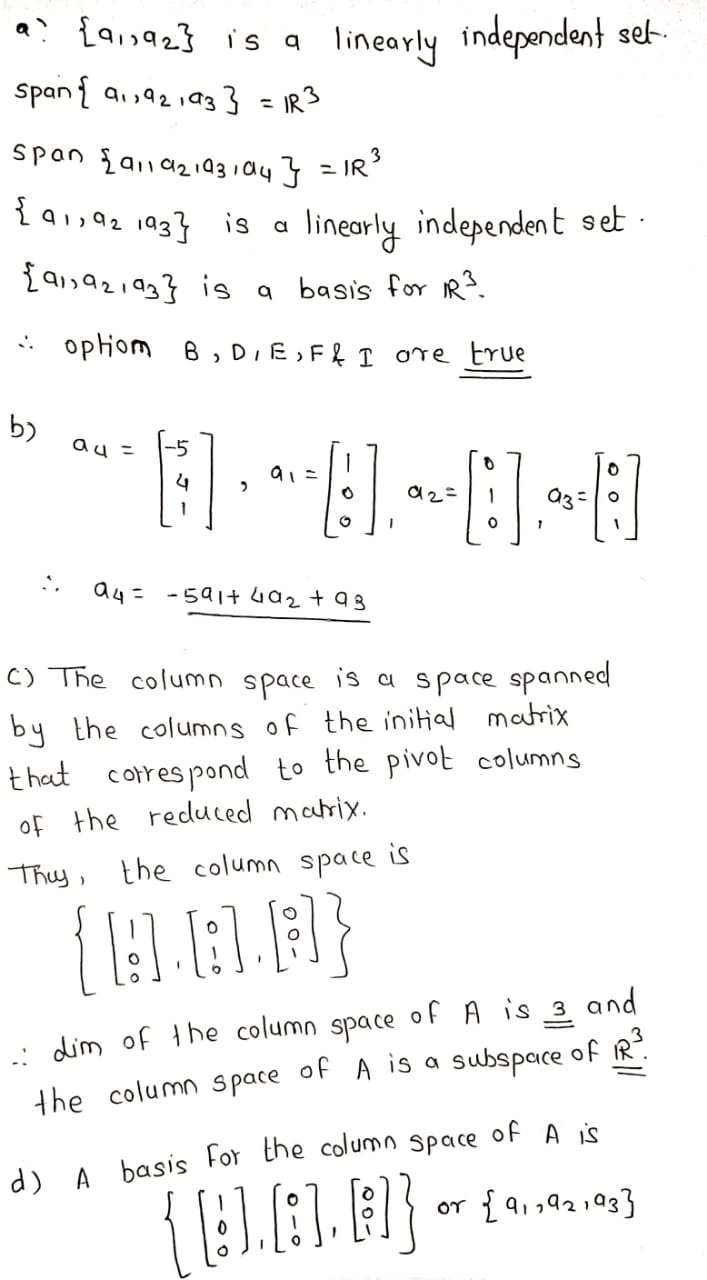 a) {a₁,a₂} is a linearly independent set.
span{ a₁,a₂,a₃ } = ℝ³
span {a₁,a₂,a₃,a₄ } = ℝ³
{ a₁,a₂,a₃} is a linearly independent set.
{a₁,a₂,a₃} is a basis for ℝ³.
∴ optiom B, D, E, F & I are true
b) a₄ = [-5 4 1], a₁ = [1 0 0], a₂ = [0 1 0], a₃ = [0 0 1]
∴ a₄ = -5a₁ + 4a₂ + a₃
c) The column space is a space spanned
by the columns of the initial matrix
that correspond to the pivot columns
of the reduced matrix.
Thus, the column space is
{ [1 0 0], [0 1 0], [0 0 1] }
∴ dim of the column space of A is 3 and
the column space of A is a subspace of ℝ³.
d) A basis for the column space of A is
{ [1 0 0], [0 1 0], [0 0 1] } or {a₁,a₂,a₃}